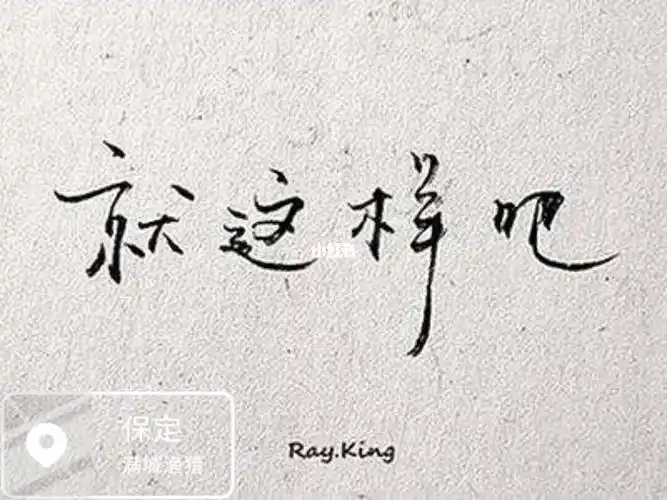 就这样吧
小红书
保定
满城渔猎
Ray.King